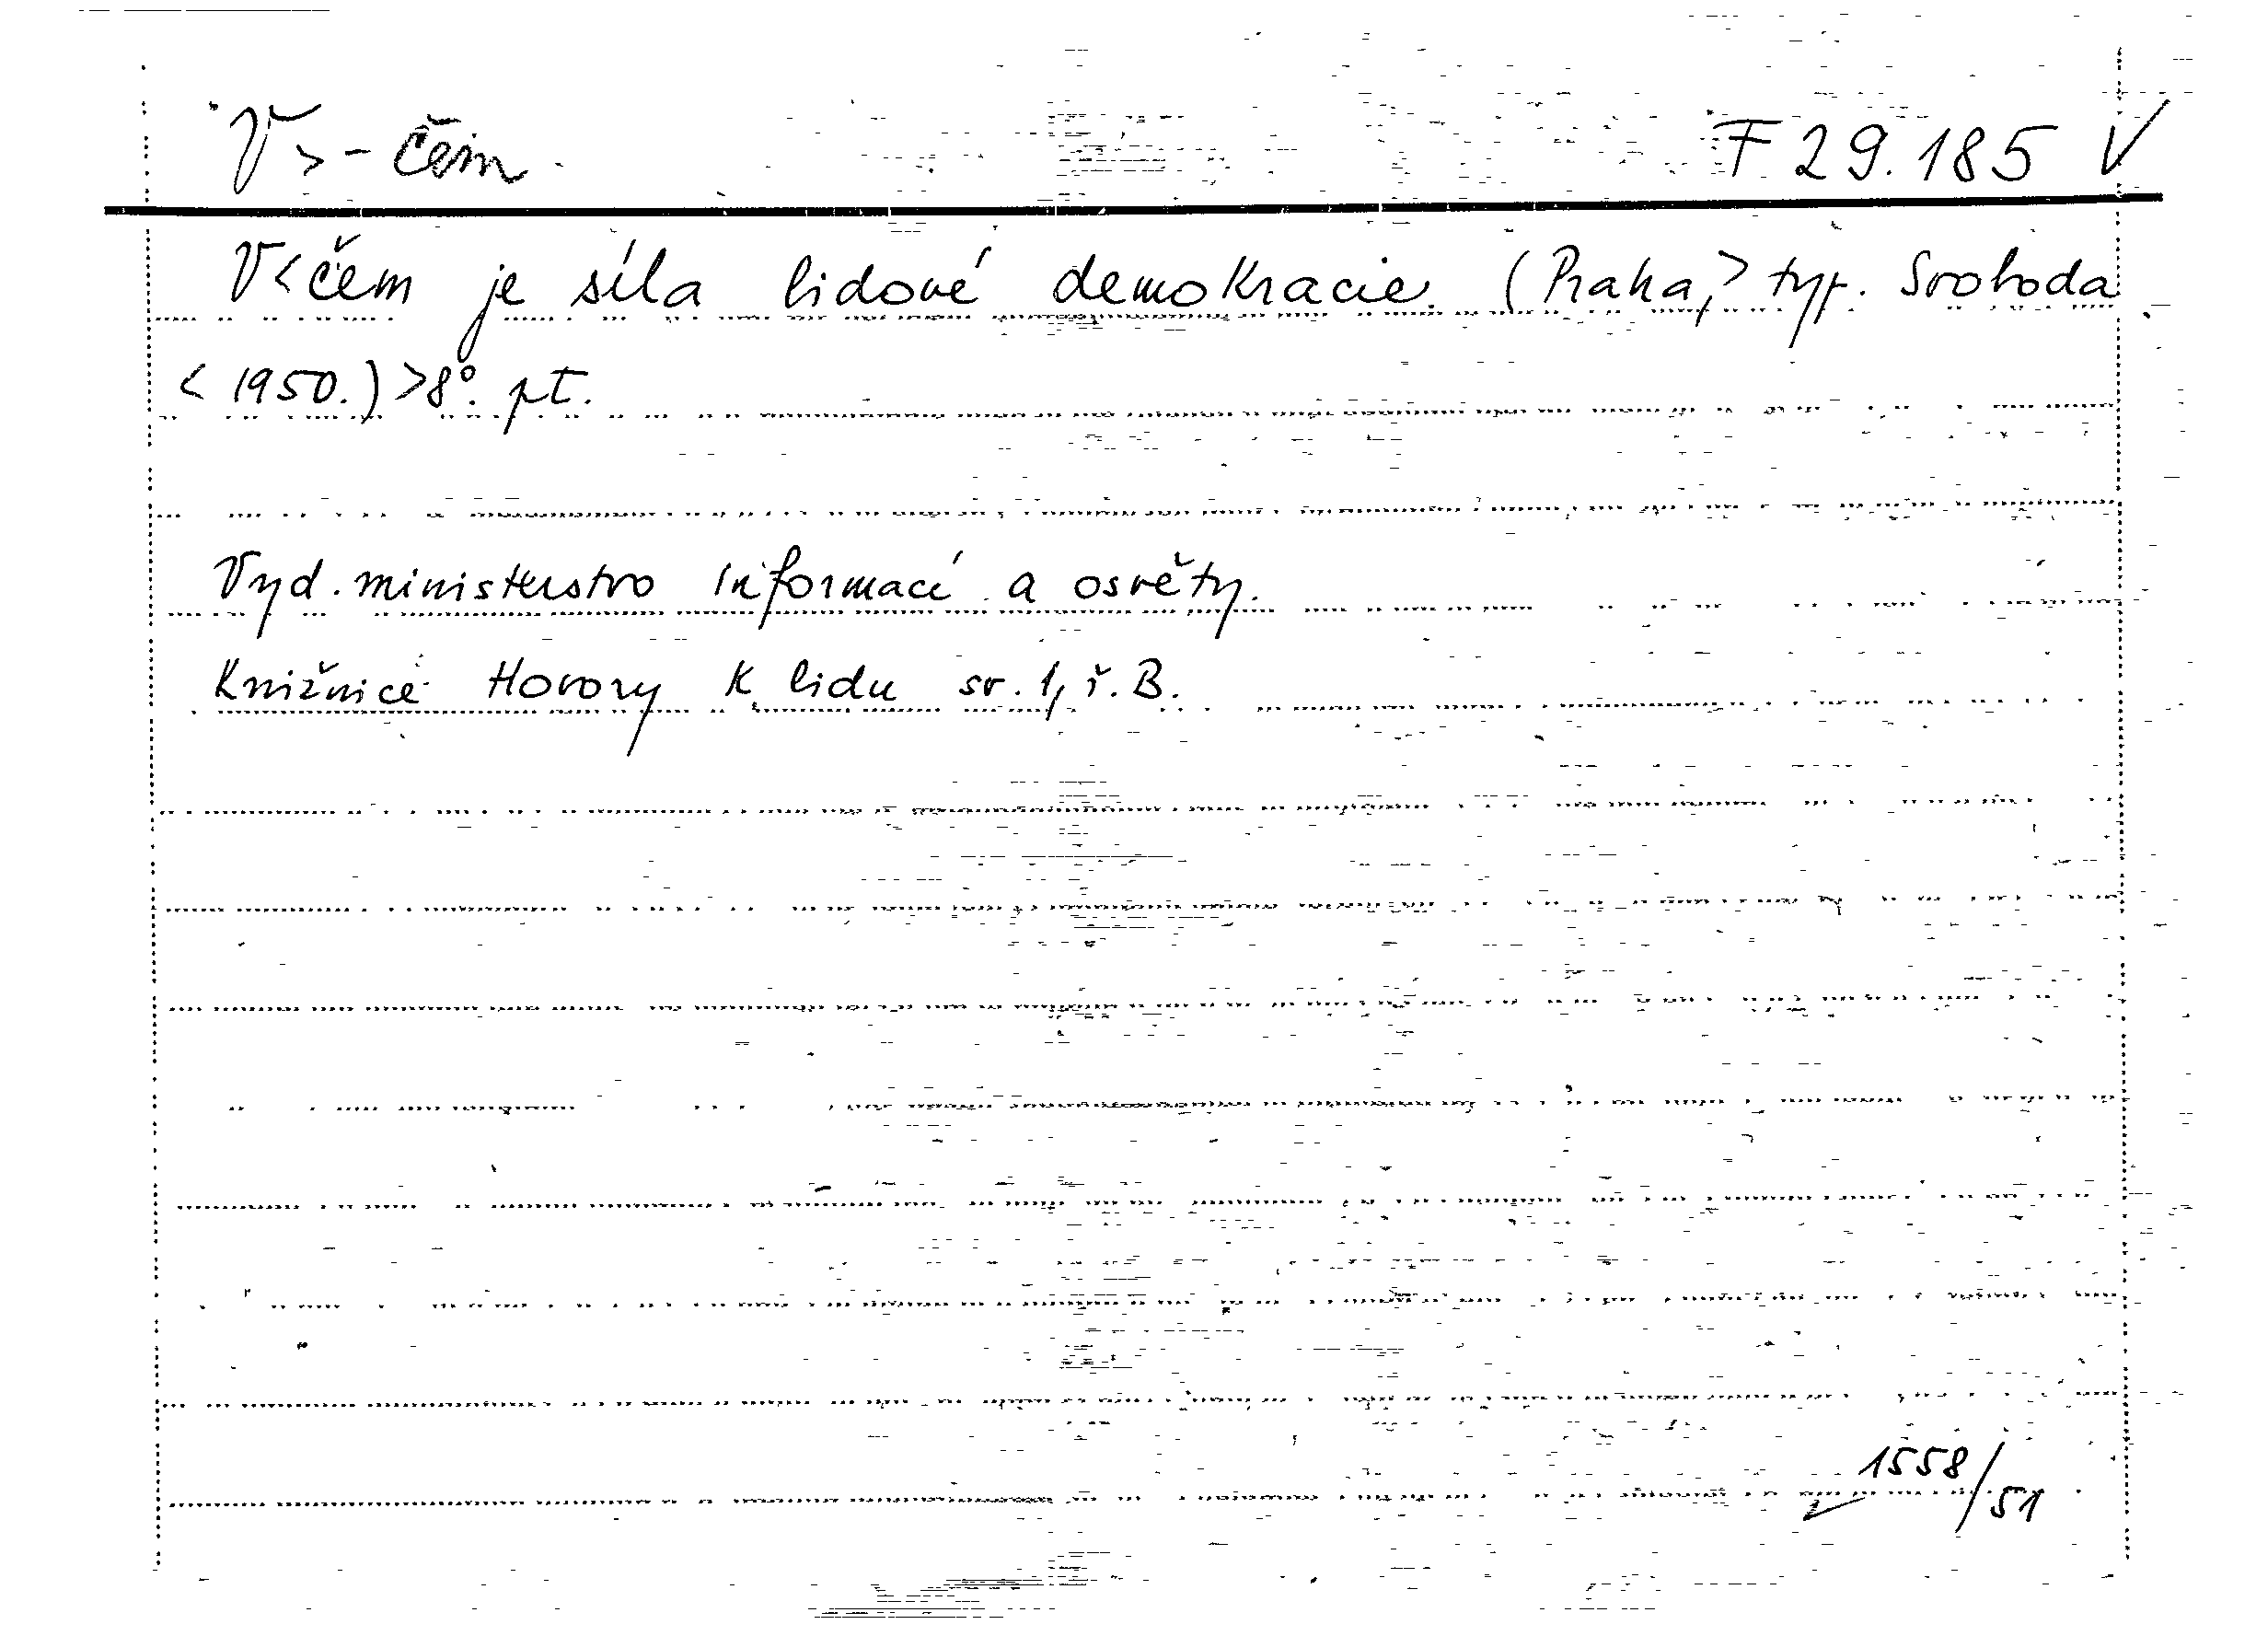 V > - čem F 29.185 V
V < čem je síla lidové demokracie. (Praha,> typ. Svoboda
< 1950.) > 8°. pt.
Vyd. ministerstvo informací a osvěty.
Knižnice Hovory k lidu sv. 1, ř. B.
1558/51